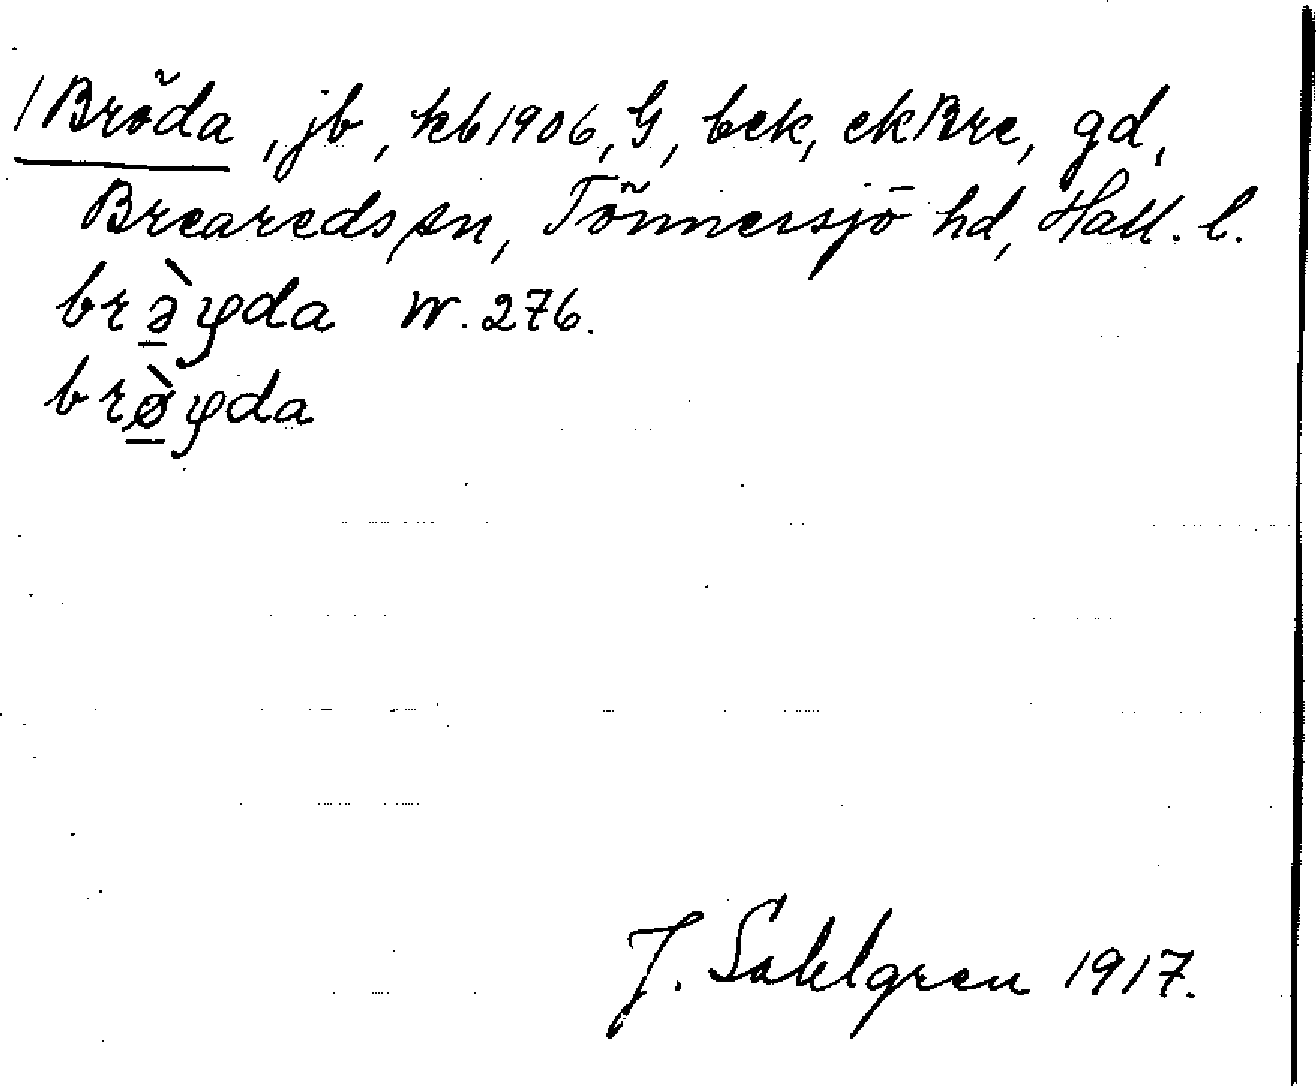 /Bröda, jb, kb1906, G, bek, ekBre, gd,
Breareds sn, Tönnersjö hd, Hall. l.
brə̀ɥda W. 276.
brø̀ɥda
J. Sahlgren 1917.